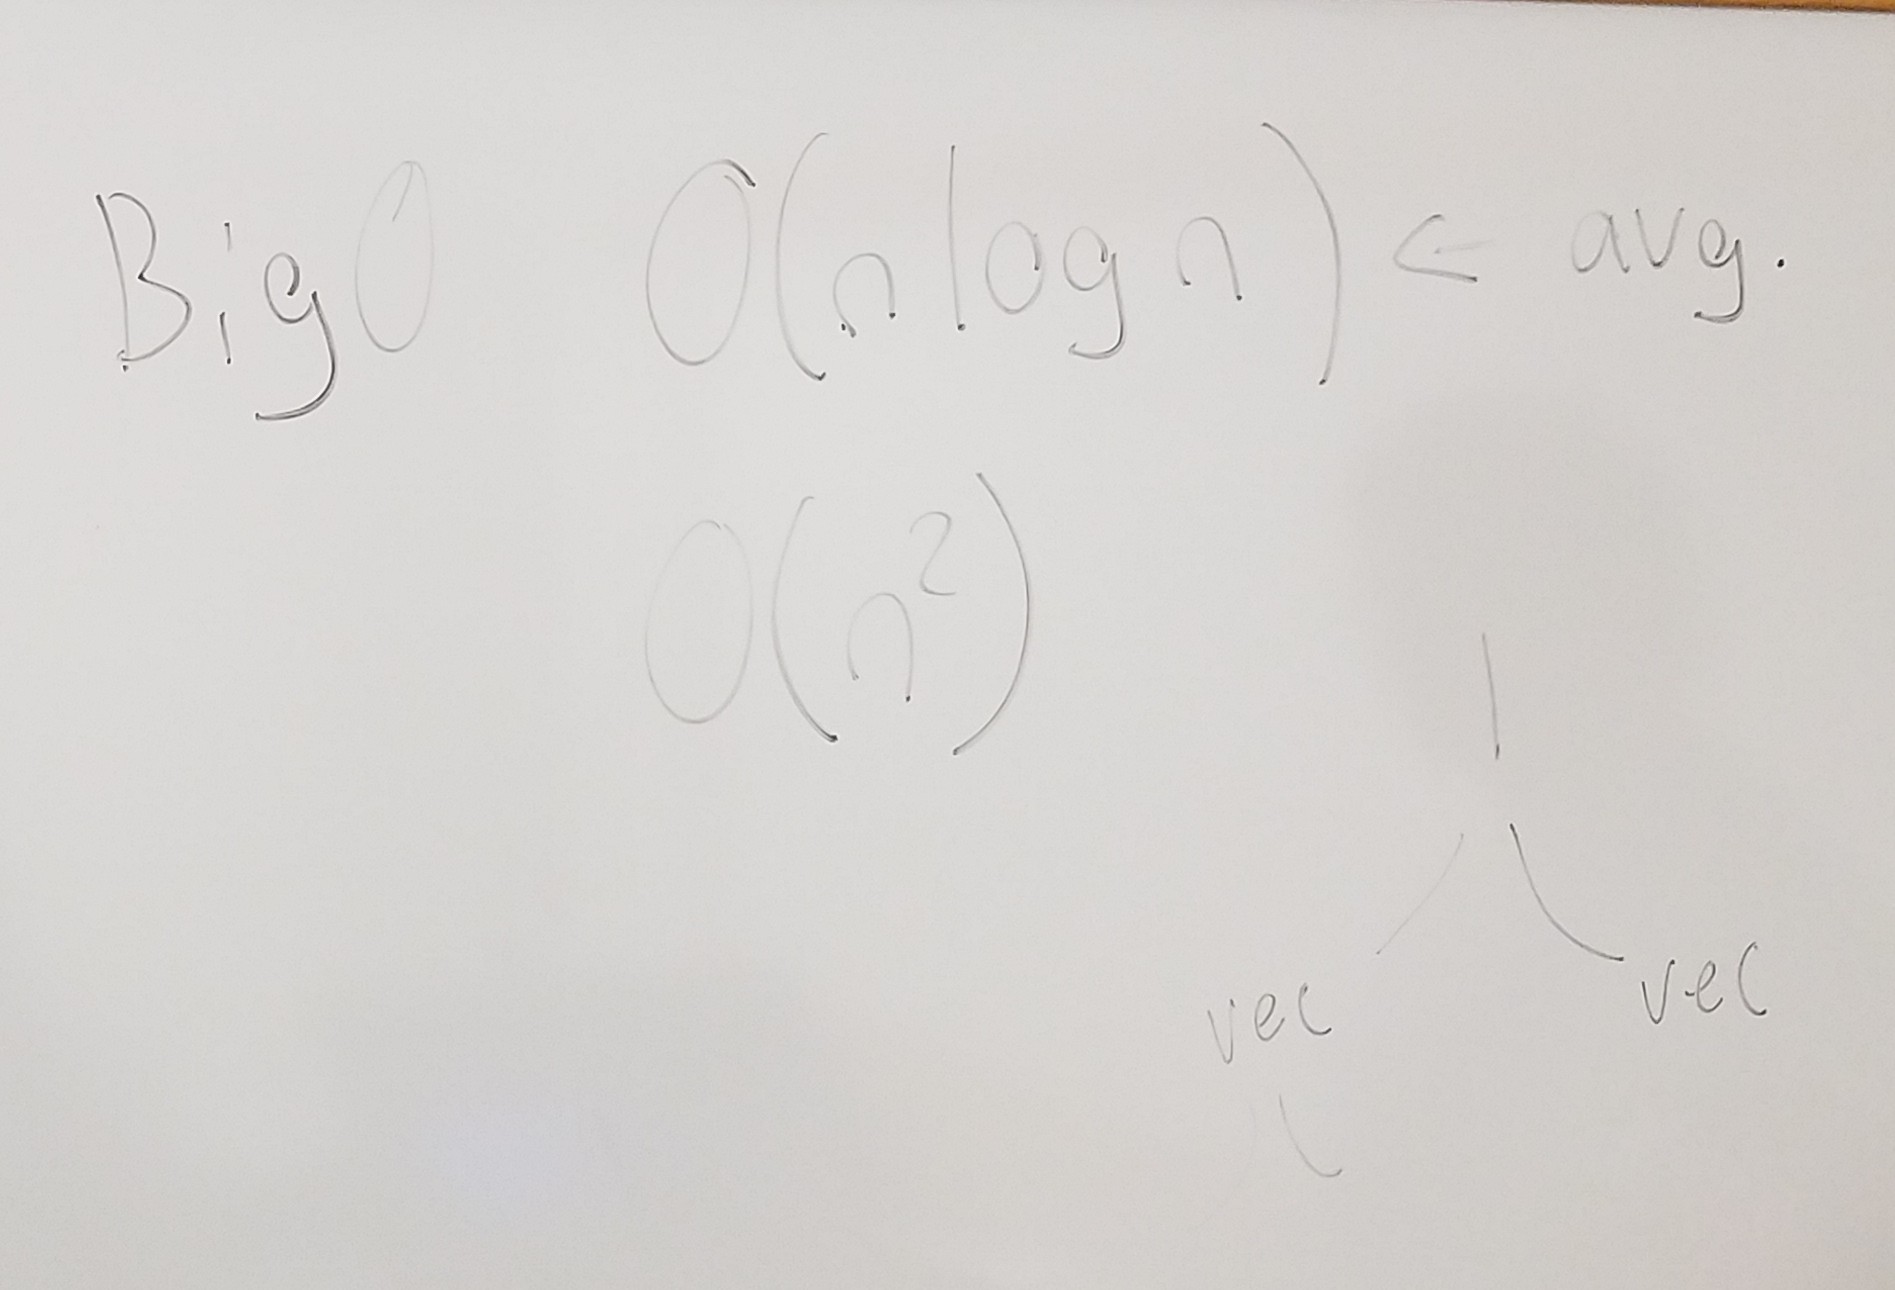 Big O O(n log n) ← avg.
O(n²)
vec vec